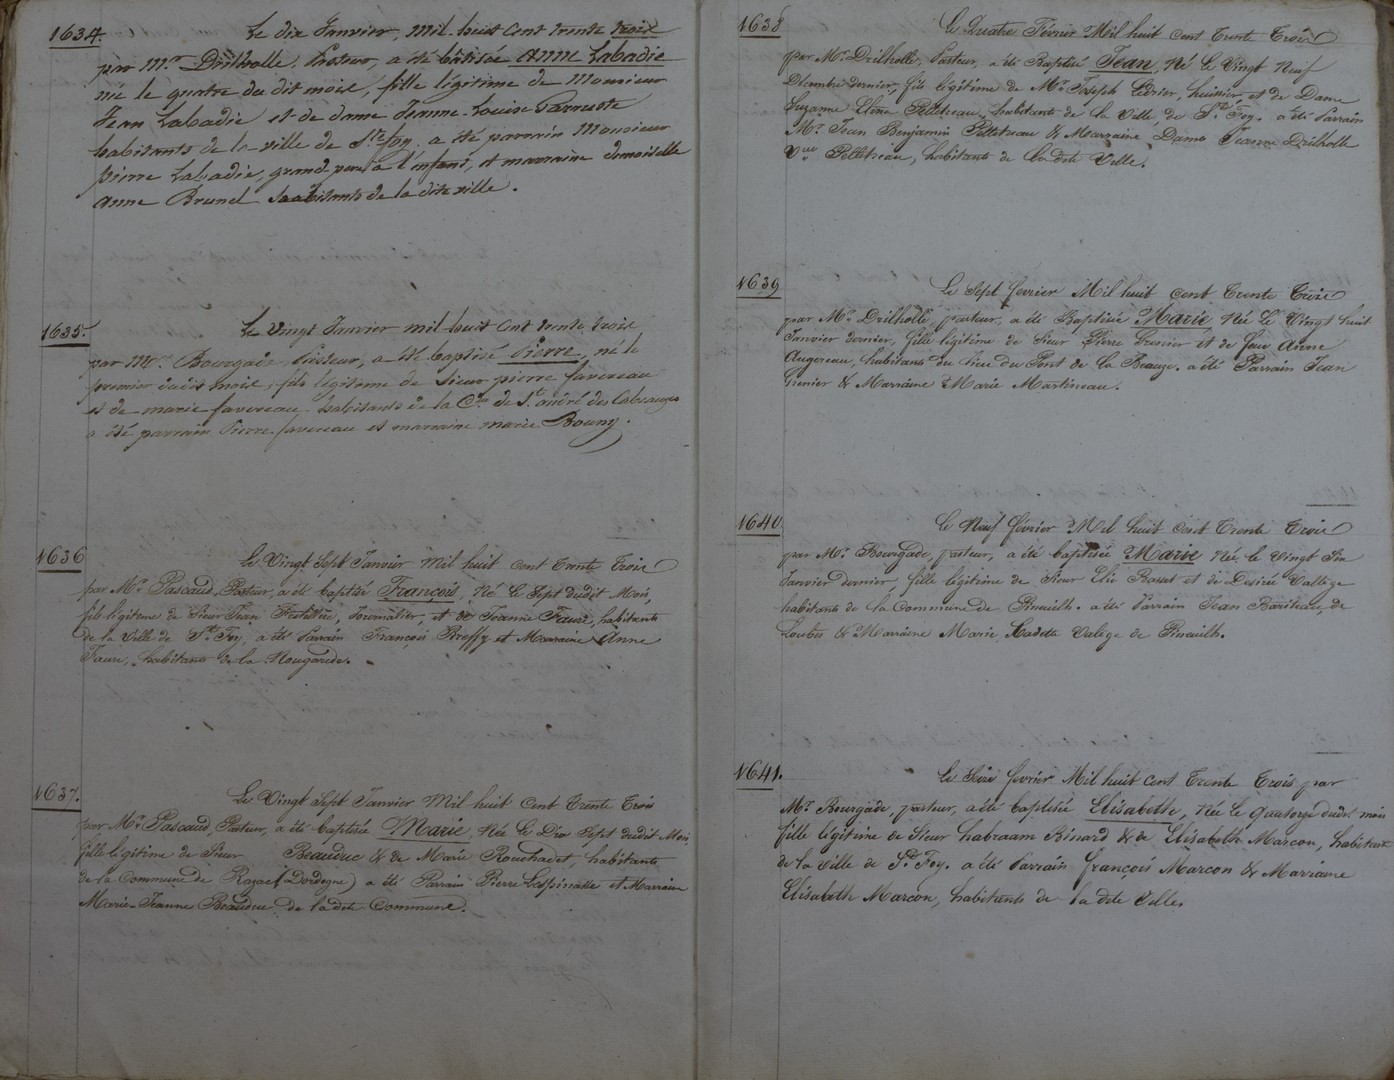 1634.
Le dix Janvier, mil huit cent trente trois
par Mr Drilholle, Pasteur, a été batisée Anne Labadie
née le quatre du dit mois, fille légitime de Monsieur
Jean Labadie et de dame Jeanne Louise
habitants de la ville de Ste foy. a été parrain Monsieur
pierre Labadie, grand pere à l'enfant, et marraine demoiselle
Anne Brunel habitants de la dite ville.
1635
Le vingt Janvier mil huit cent trente trois,
par Mr. Bourgade, Pasteur, a été baptisé Pierre, né le
premier dudit mois, fils légitime de Sieur pierre favereau
et de marie favereau, habitants de la Cne de St. andré des
a été parrain Pierre favereau et marraine marie Bouny.
1636
Le Vingt Sept Janvier Mil huit Cent Trente Trois
par Mr. Pascaud, Pasteur, a été baptisé François, Né Le Sept dudit Mois,
fils légitime de Sieur Jean et de Jeanne Faure, habitants
de la Ville de Ste Foy, a été Parrain François et Marraine Anne
Faure, habitants de la Nougarède.
1637.
Le Vingt Sept Janvier Mil huit Cent Trente Trois
par Mr. Pascaud, Pasteur, a été baptisée Marie, Née Le Dix Sept dudit Mois,
fille légitime de Sieur Beauduc & de Marie Rouchadet habitants
de la Commune de Razac (Dordogne) a été Parrain Pierre Lespinasse et Marraine
Marie Jeanne Beauduc de ladite Commune.
1638
Le Quatre Février Mil huit cent Trente Trois
par Mr. Drilholle, Pasteur, a été Baptisé Jean, Né Le Vingt Neuf
Décembre dernier, fils légitime de Mr. Joseph huissier et de Dame
Suzanne Pelletreau, habitants de la Ville, de Ste Foy. a été Parrain
Mr. Jean Benjamin Pelletreau & Marraine Dame Jeanne Drilholle
Vve Pelletreau, habitants de ladite Ville.
1639
Le Sept février Mil huit cent Trente Trois
par Mr. Drilholle, pasteur, a été Baptisée Marie, Née Le Vingt huit
Janvier dernier, fille légitime de Sieur Pierre Grenier et de feue Anne
Augereau, habitants du lieu du Pont de la Beauze. a été Parrain Jean
Grenier & Marraine Marie Martineau.
1640
Le Neuf février Mil huit cent Trente Trois
par Mr. Bourgade, pasteur, a été baptisée Marie Née le Vingt Six
Janvier dernier, fille légitime de Sieur Elie Rosset et de Desirée Vallège
habitants de la Commune de Pineuilh. a été Parrain Jean Bariteau, de
Loubès & Marraine Marie Cadette Valège de Pineuilh.
1641.
Le Seize février Mil huit cent Trente Trois par
Mr. Bourgade, pasteur, a été baptisée Elisabeth, Née Le quatorze dudit mois
fille légitime de Sieur habraam Binard & de Elisabeth Marcon, habitants
de la Ville de Ste Foy. a été Parrain françois Marcon & Marraine
Elisabeth Marcon, habitants de ladite Ville